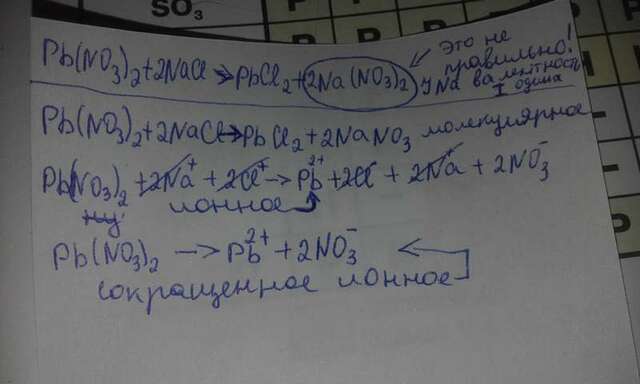 SO₃
P
P
Pb(NO₃)₂+2NaCl→PbCl₂+2Na(NO₃)₂
← это не
правильно!
У Na валентность
I одна
Pb(NO₃)₂+2NaCl→PbCl₂+2NaNO₃ молекулярное
Pb(NO₃)₂+2Na⁺+2Cl⁺→Pb²⁺+2Cl⁻+2Na⁺+2NO₃⁻
ионное
Pb(NO₃)₂→Pb²⁺+2NO₃⁻
сокращенное ионное